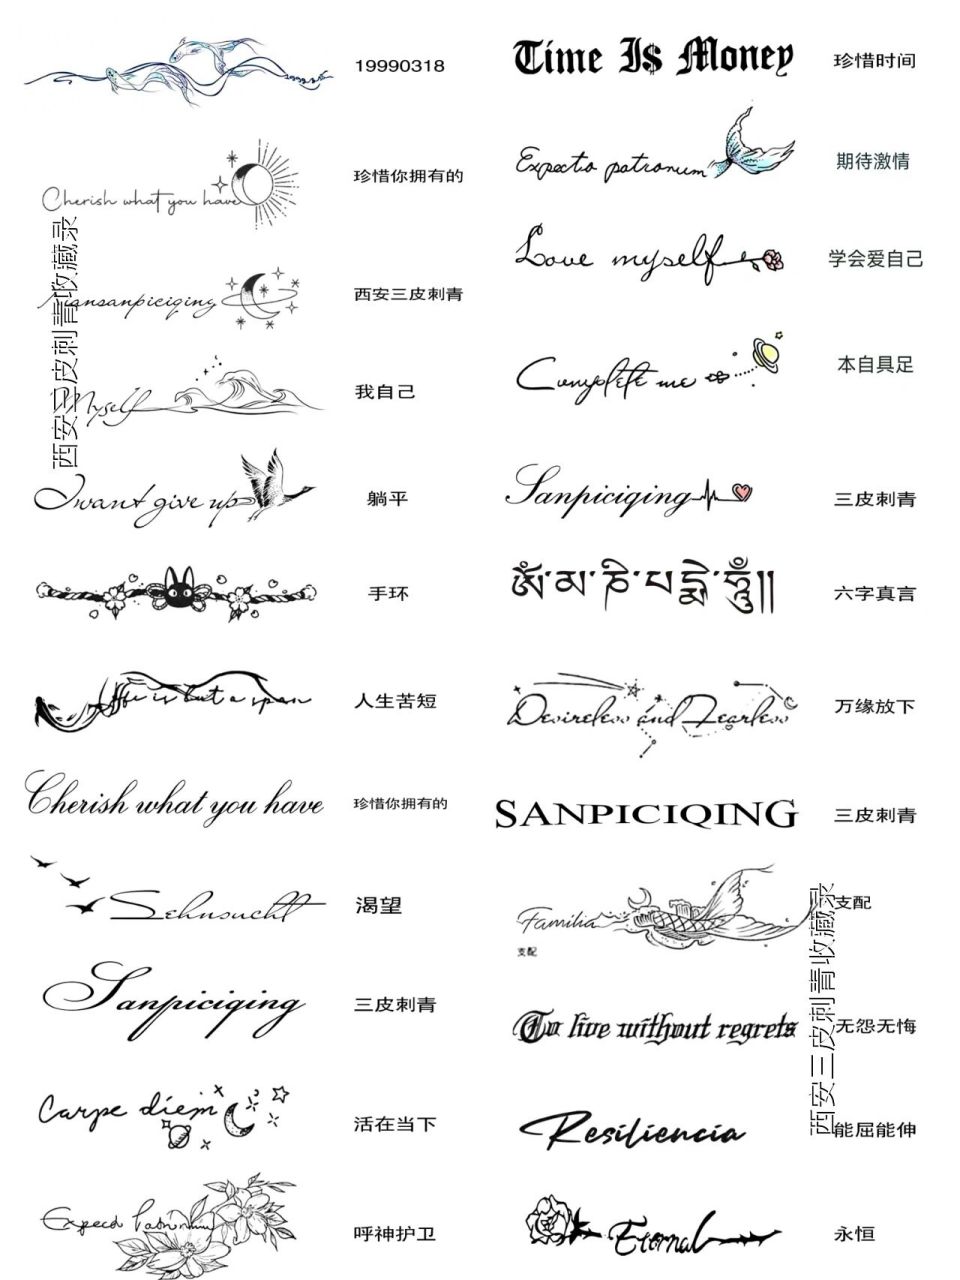 19990318
Time Is Money
珍惜时间
Cherish what you have
珍惜你拥有的
Expecto patronum
期待激情
Love myself
学会爱自己
西安三皮刺青
Myself
我自己
Complete me
本自具足
I want give up
躺平
Sanpiciqing
三皮刺青
手环
ཨོཾ་མ་ཎི་པདྨེ་ཧཱུྃ༎
六字真言
人生苦短
Desireless and Fearless
万缘放下
Cherish what you have
珍惜你拥有的
SANPICIQING
三皮刺青
Sehnsucht
渴望
Familia
支配
支配
Sanpiciqing
三皮刺青
To live without regrets
无怨无悔
Carpe diem
活在当下
Resiliencia
能屈能伸
呼神护卫
Eternal
永恒
西安三皮刺青收藏录
西安三皮刺青收藏录